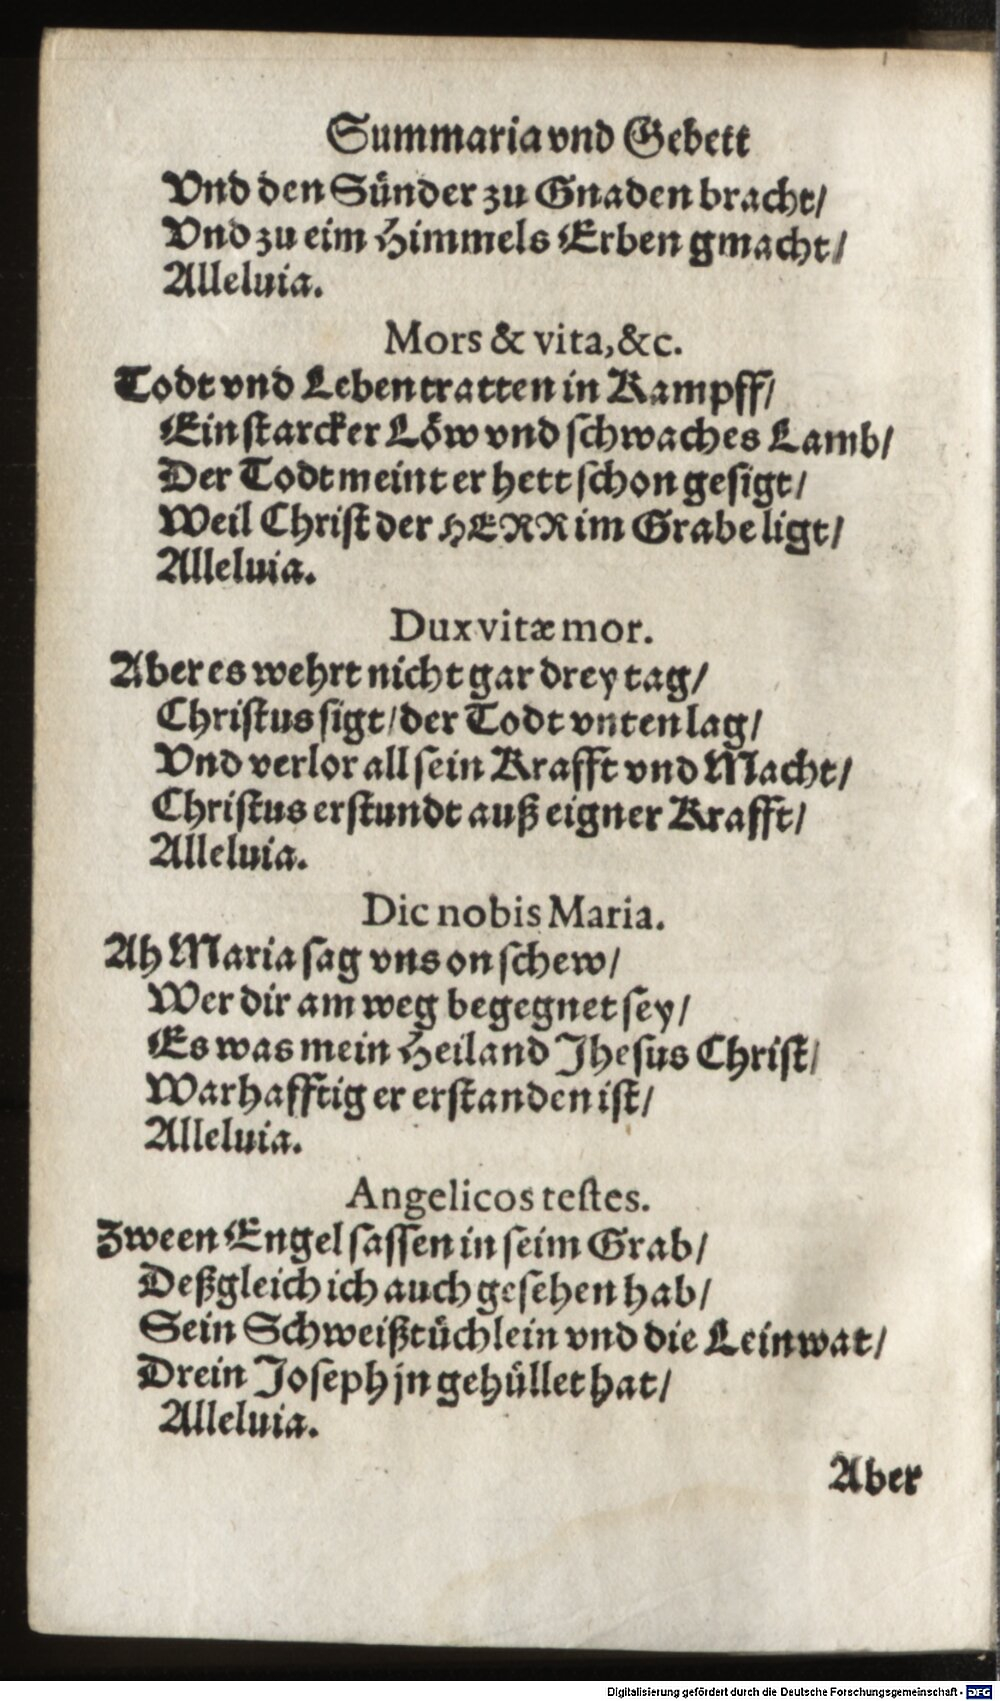 Summaria vnd Gebett
Vnd den Sünder zu Gnaden bracht/
Vnd zu eim Himmels Erben gmacht/
Alleluia.
Mors & vita, &c.
Todt vnd Leben tratten in Kampff/
Ein starcker Löw vnd schwaches Lamb/
Der Todt meint er hett schon gesigt/
Weil Christ der HERR im Grabe ligt/
Alleluia.
Dux vitæ mor.
Aber es wehrt nicht gar drey tag/
Christus sigt/ der Todt vnten lag/
Vnd verlor all sein Krafft vnd Macht/
Christus erstundt auß eigner Krafft/
Alleluia.
Dic nobis Maria.
Ah Maria sag vns on schew/
Wer dir am weg begegnet sey/
Es was mein Heiland Jhesus Christ/
Warhafftig er erstanden ist/
Alleluia.
Angelicos testes.
Zween Engel sassen in seim Grab/
Deßgleich ich auch gesehen hab/
Sein Schweißtüchlein vnd die Leinwat/
Drein Joseph jn gehüllet hat/
Alleluia.
Aber
Digitalisierung gefördert durch die Deutsche Forschungsgemeinschaft - DFG